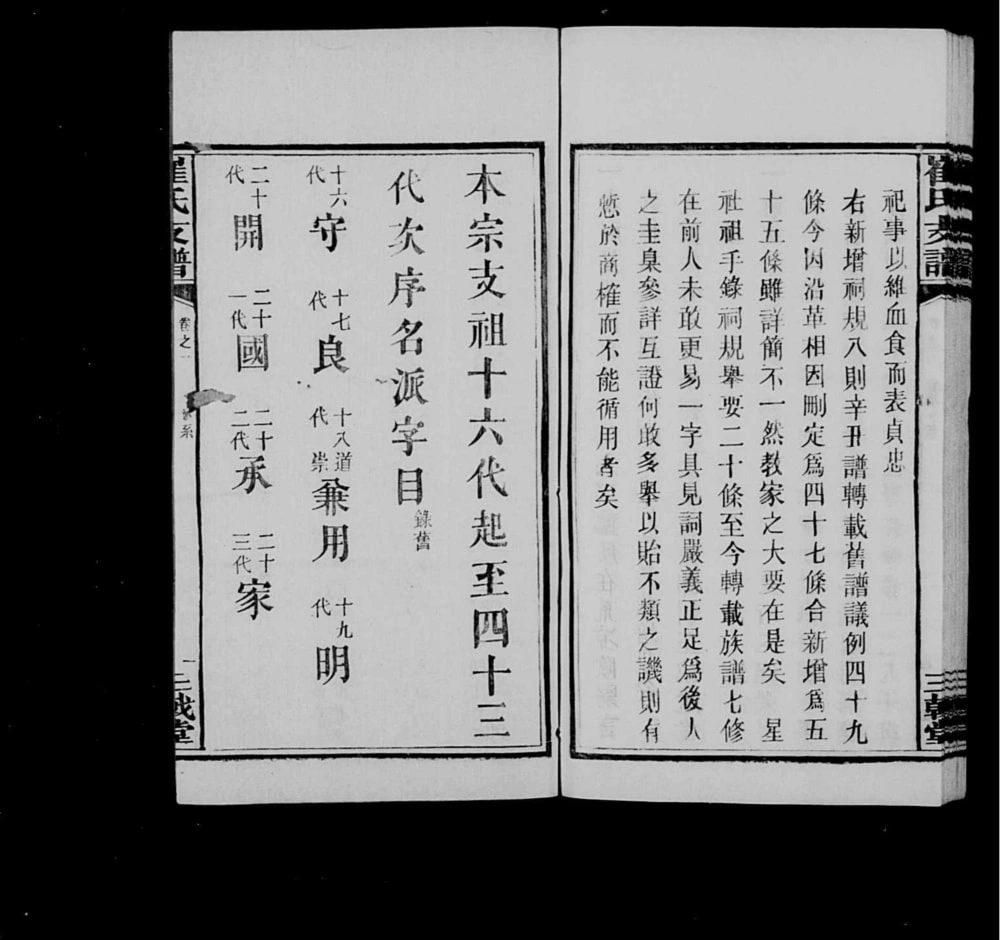 祀事以維血食而表貞忠
右新增祠規八則辛丑譜轉載舊譜議例四十九
條今因沿革相因刪定爲四十七條合新增爲五
十五條雖詳簡不一然教家之大要在是矣 星
社祖手錄祠規舉要二十條至今轉載族譜七修
在前人未敢更易一字具見詞嚴義正足爲後人
之圭臬參詳互證何敢多舉以貽不類之譏則有
慙於商榷而不能循用者矣
崔氏支譜
三戟堂
本宗支祖十六代起至四十三
代次序名派字目 錄舊
十六代 守 十七代 良 十八代 道崇 兼用 十九代 明
二十代 開 二十一代 國 二十二代 承 二十三代 家
崔氏支譜 卷之一 系 一 三戟堂